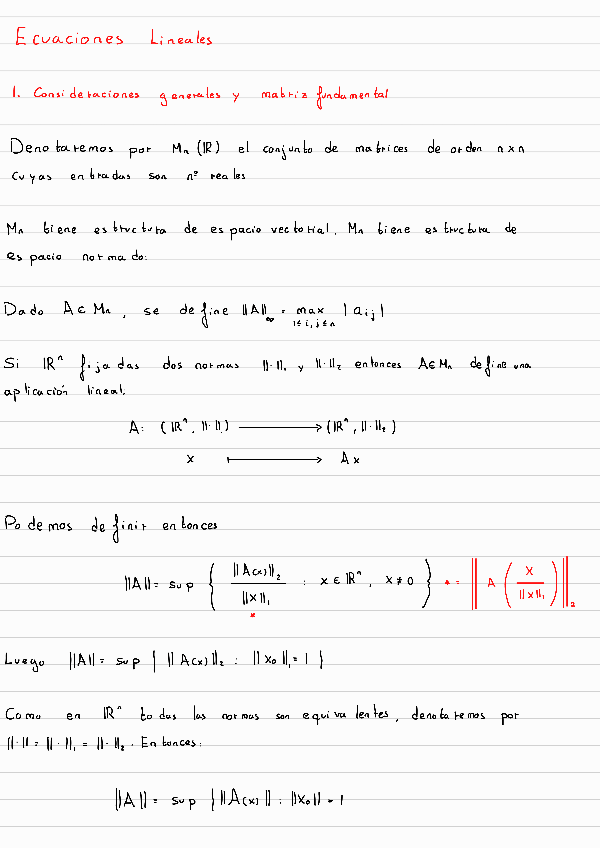 Ecuaciones Lineales
1. Consideraciones generales y matriz fundamental
Denotaremos por Mn (ℝ) el conjunto de matrices de orden n×n
cuyas entradas son nº reales
Mn tiene estructura de espacio vectorial. Mn tiene estructura de
espacio normado:
Dado A∈Mn, se define ||A||∞ = max |aij|
1≤i,j≤n
Si ℝⁿ fijadas dos normas ||·||₁ y ||·||₂ entonces A∈Mn define una
aplicación lineal.
A: (ℝⁿ, ||·||₁) → (ℝⁿ, ||·||₂)
x ↦ Ax
Podemos definir entonces
||A|| = sup { ||A(x)||₂ / ||x||₁ : x ∈ ℝⁿ, x ≠ 0 } * = || A ( x / ||x||₁ ) ||₂
*
Luego ||A|| = sup { ||A(x)||₂ : ||x₀||₁ = 1 }
Como en ℝⁿ todas las normas son equivalentes, denotaremos por
||·|| = ||·||₁ = ||·||₂. Entonces:
||A|| = sup { ||A(x)|| : ||x₀|| = 1